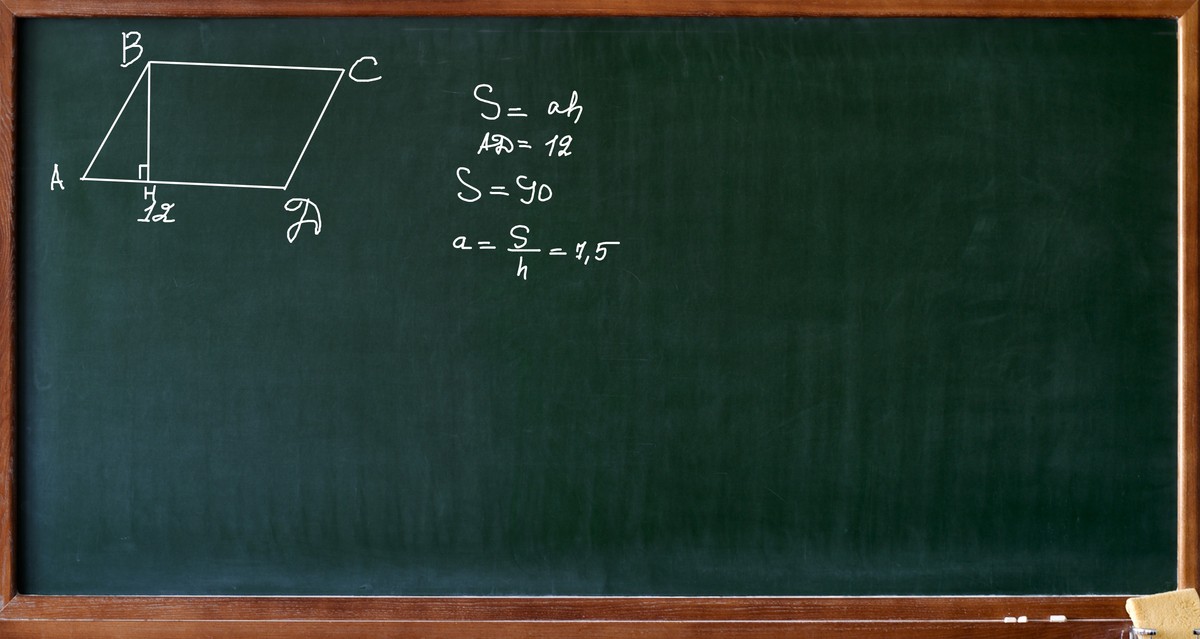 B
C
A
H
12
D
S = ah
AD = 12
S = 90
a = S/h = 7,5